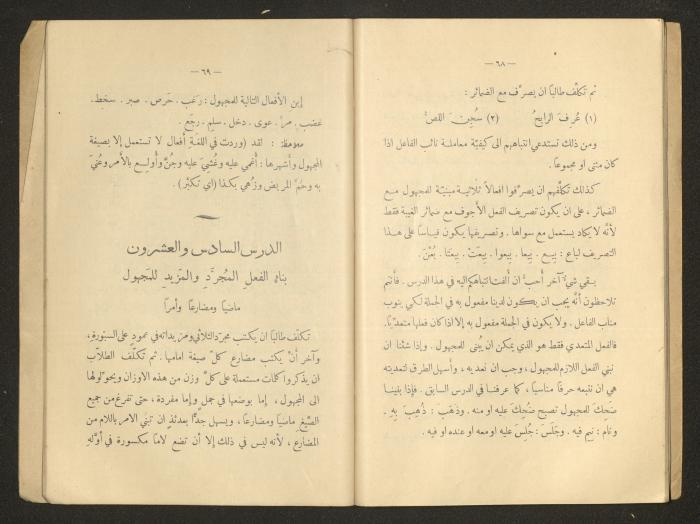 — ٦٨ —
ثم تكلّف طالباً ان يصرّف مع الضمائر :
(١) عُرِفَ الرابحُ (٢) سُجِنَ اللصُّ
ومن ذلك تستدعي انتباههم الى كيفيّة معاملة نائب الفاعل اذا
كان مثنى او مجموعاً .
كذلك تكلّفهم ان يصرّفوا افعالاً ثلاثية مبنيّة للمجهول مع
الضمائر ، على ان يكون تصريف الفعل الأجوف مع ضمائر الغيبة فقط
لأنّه لا يكاد يستعمل مع سواها . وتصريفها يكون قياساً على هذا
التصريف لباع : بيع . بيعا . بيعوا . بيعَتْ . بيعتا . بُعْنَ .
بقي شيءٌ آخر أُحبُّ ان ألفت انتباهكم اليه في هذا الدرس . فأنتم
تلاحظون أنّه يجب ان يكون لدينا مفعول به في الجملة لكي ينوب
مناب الفاعل . ولا يكون في الجملة مفعول به إلا اذا كان فعلها متعدّيًا .
فالفعل المتعدي فقط هو الذي يمكن ان يُبنى للمجهول . وإذا شئنا ان
نبني الفعل اللازم للمجهول ، وجب ان نعديه ، وأسهل الطرق لتعديته
هي ان نتبعه حرفًا مناسبًا ، كما عرفنا في الدرس السابق . فإذا بنينا
ضَحِكَ للمجهول تصبح ضُحِكَ عليه او منه . وذهَبَ : ذُهِبَ بِهِ .
ونام : نِيم فيه . وجَلَسَ : جُلِسَ عليه او معه او عنده او فيه .
— ٦٩ —
إبنِ الأفعال التالية للمجهول : رَغب . حَرص . صبر . سخط .
غضب . مرَّ . عوى . دخل . سلِم . رجَع .
ملاحظة : لقد (وردت في اللغة أفعال لا تستعمل إلا بصيغة
المجهول وأشهرها : أُغمي عليه وغُشيَ عليه وجُنَّ وأُولِع بالأمر وعُنيَ
به وحُمَّ المريض وزُهي بكذا (اي تكبّر) .
الدرس السادس والعشرون
بناء الفعل المُجرَّدِ والمَزيدِ للمَجهول
ماضيًا ومضارعًا وأمرًا
تكلّف طالبًا ان يكتب مجرّد الثلاثي ومزيداته في عمودٍ على السبّورة ،
وآخر أَنْ يكتب مضارع كلّ صيغة امامها . ثم تكلّف الطلّاب
ان يذكروا كلمات مستعملة على كلّ وزن من هذه الاوزان ويحوّلوها
الى المجهول ، إما بوضعها في جملٍ وإما مفردة ، حتى تفرغ من جميع
الصِّيَغِ ماضيًا ومضارعًا ، ويسهل جدًّا بعدئذٍ ان تبني الامر باللام من
المضارع ، لأنه ليس في ذلك إلا أن تضع لامًا مكسورة في أوّله